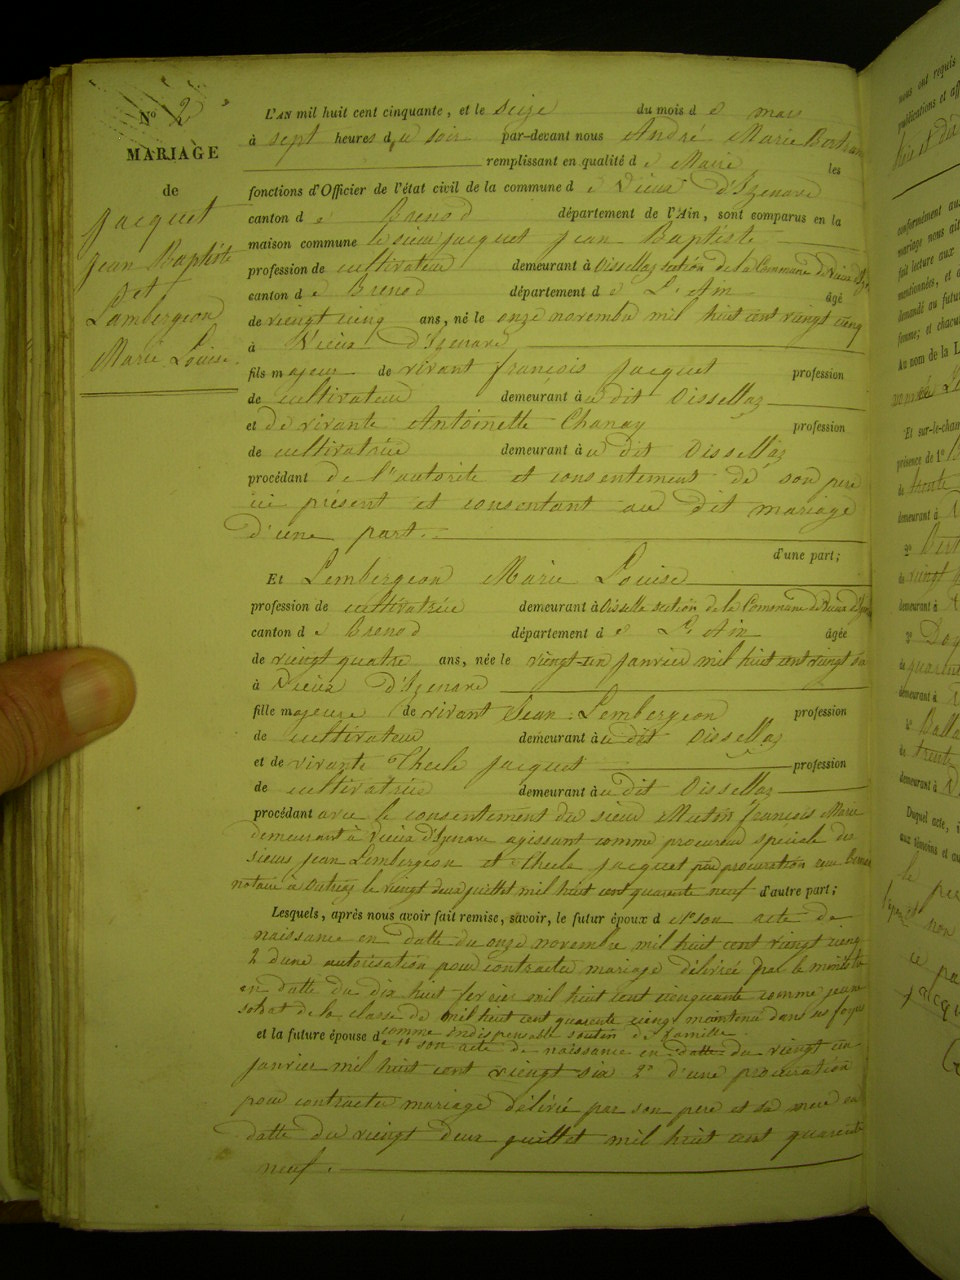 N° 2
MARIAGE
de
Jacquet
Jean Baptiste
et
Lambergeon
Marie Louise
L'AN mil huit cent cinquante, et le seize du mois d e mars
à sept heures du soir par-devant nous André Marie Bertrand
remplissant en qualité d e Maire les
fonctions d'Officier de l'état civil de la commune d e Vieux d'Izenave
canton d e Brenod département de l'Ain, sont comparus en la
maison commune le sieur Jacquet Jean Baptiste
profession de cultivateur demeurant à Oissellaz section de la Commune de Vieux d'Ize
canton d e Brenod département d e L'Ain âgé
de vingt cinq ans, né le onze novembre mil huit cent vingt cinq
à Vieux d'Izenave
fils majeur de vivant françois Jacquet profession
de cultivateur demeurant à u dit Oissellaz
et de vivante Antoinette Chanay profession
de cultivatrice demeurant à u dit Oissellaz
procédant de l'autorité et consentement de son père
ici présent et consentant au dit mariage
d'une part.
d'une part;
Et Lembergeon Marie Louise
profession de cultivatrice demeurant à Oissella section de la Commune de Vieux d'Ize
canton d e Brenod département d e L'Ain âgée
de vingt quatre ans, née le vingt-un janvier mil huit cent vingt six
à Vieux d'Izenave
fille majeure de vivant Jean Lembergeon profession
de cultivateur demeurant à u dit Oissellaz
et de vivante Thecle Jacquet profession
de cultivatrice demeurant à u dit Oissellaz
procédant avec le consentement du sieur françois Marie
demeurant à Vieux d'Izenave agissant comme procureur spéciale des
sieurs Jean Lembergeon et Thecle Jacquet par procuration
notaire à le vingt deux juillet mil huit cent quarante neuf d'autre part;
Lesquels, après nous avoir fait remise, savoir, le futur époux d e 1° son acte de
naissance en datte du onze novembre mil huit cent vingt cinq
2° d'une autorisation pour contracter mariage délivrée par le ministre
en datte du dix huit fevrier mil huit cent cinquante comme jeune
soldat de la classe de mil huit cent quarante cinq maintenu dans ses foyers
comme indispensable soutien de famille
et la future épouse d e 1° son acte de naissance en datte du vingt un
janvier mil huit cent vingt six 2° d'une procuration
pour contracter mariage délivrée par son père et sa mère en
datte du vingt deux juillet mil huit cent quarante
neuf.